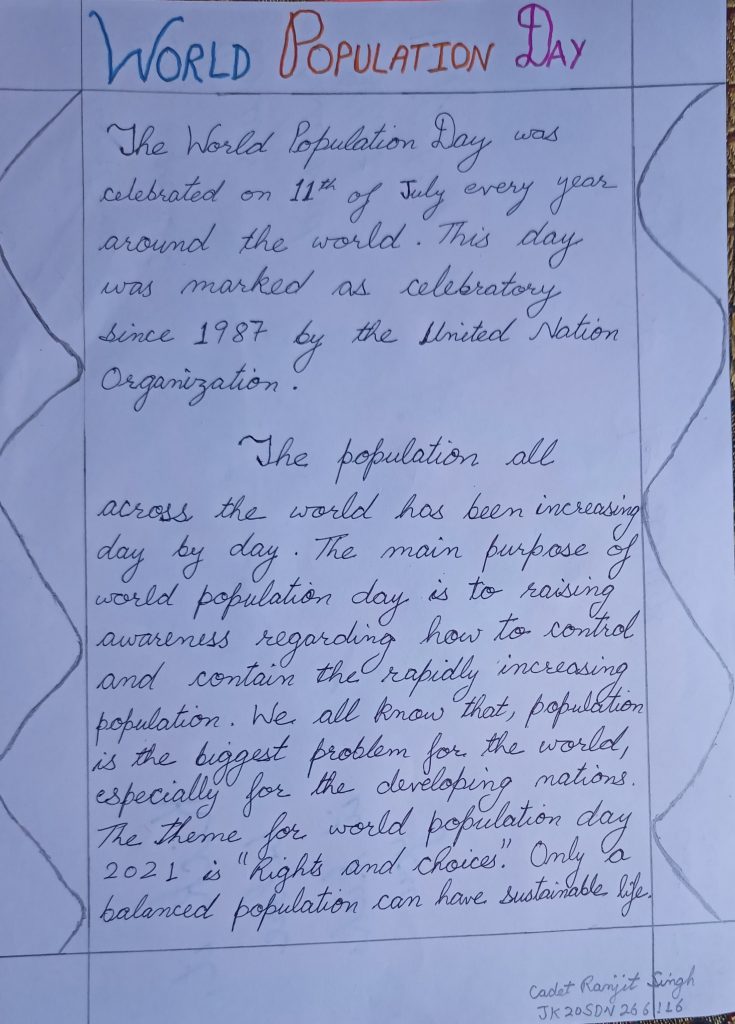 WORLD POPULATION DAY
The World Population Day was
celebrated on 11th of July every year
around the world. This day
was marked as celebratory
since 1987 by the United Nation
Organization.
The population all
across the world has been increasing
day by day. The main purpose of
world population day is to raising
awareness regarding how to control
and contain the rapidly increasing
population. We all know that, population
is the biggest problem for the world,
especially for the developing nations.
The theme for world population day
2021 is "Rights and choices". Only a
balanced population can have sustainable life.
Cadet Ranjit Singh
JK20SDN266116